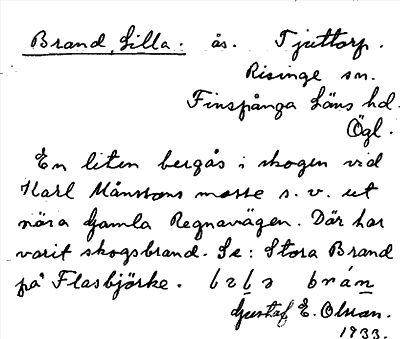 Brand, Lilla. ås. Tjuttorp.
Risinge sn.
Finspånga Läns hd.
Ögl.
En liten bergås i skogen vid
Karl Månssons mosse s. v. ut
nära Gamla Regnavägen. Där har
varit skogsbrand. Se: Stora Brand
på Flasbjörke.
Gustaf E. Olsson.
1933.